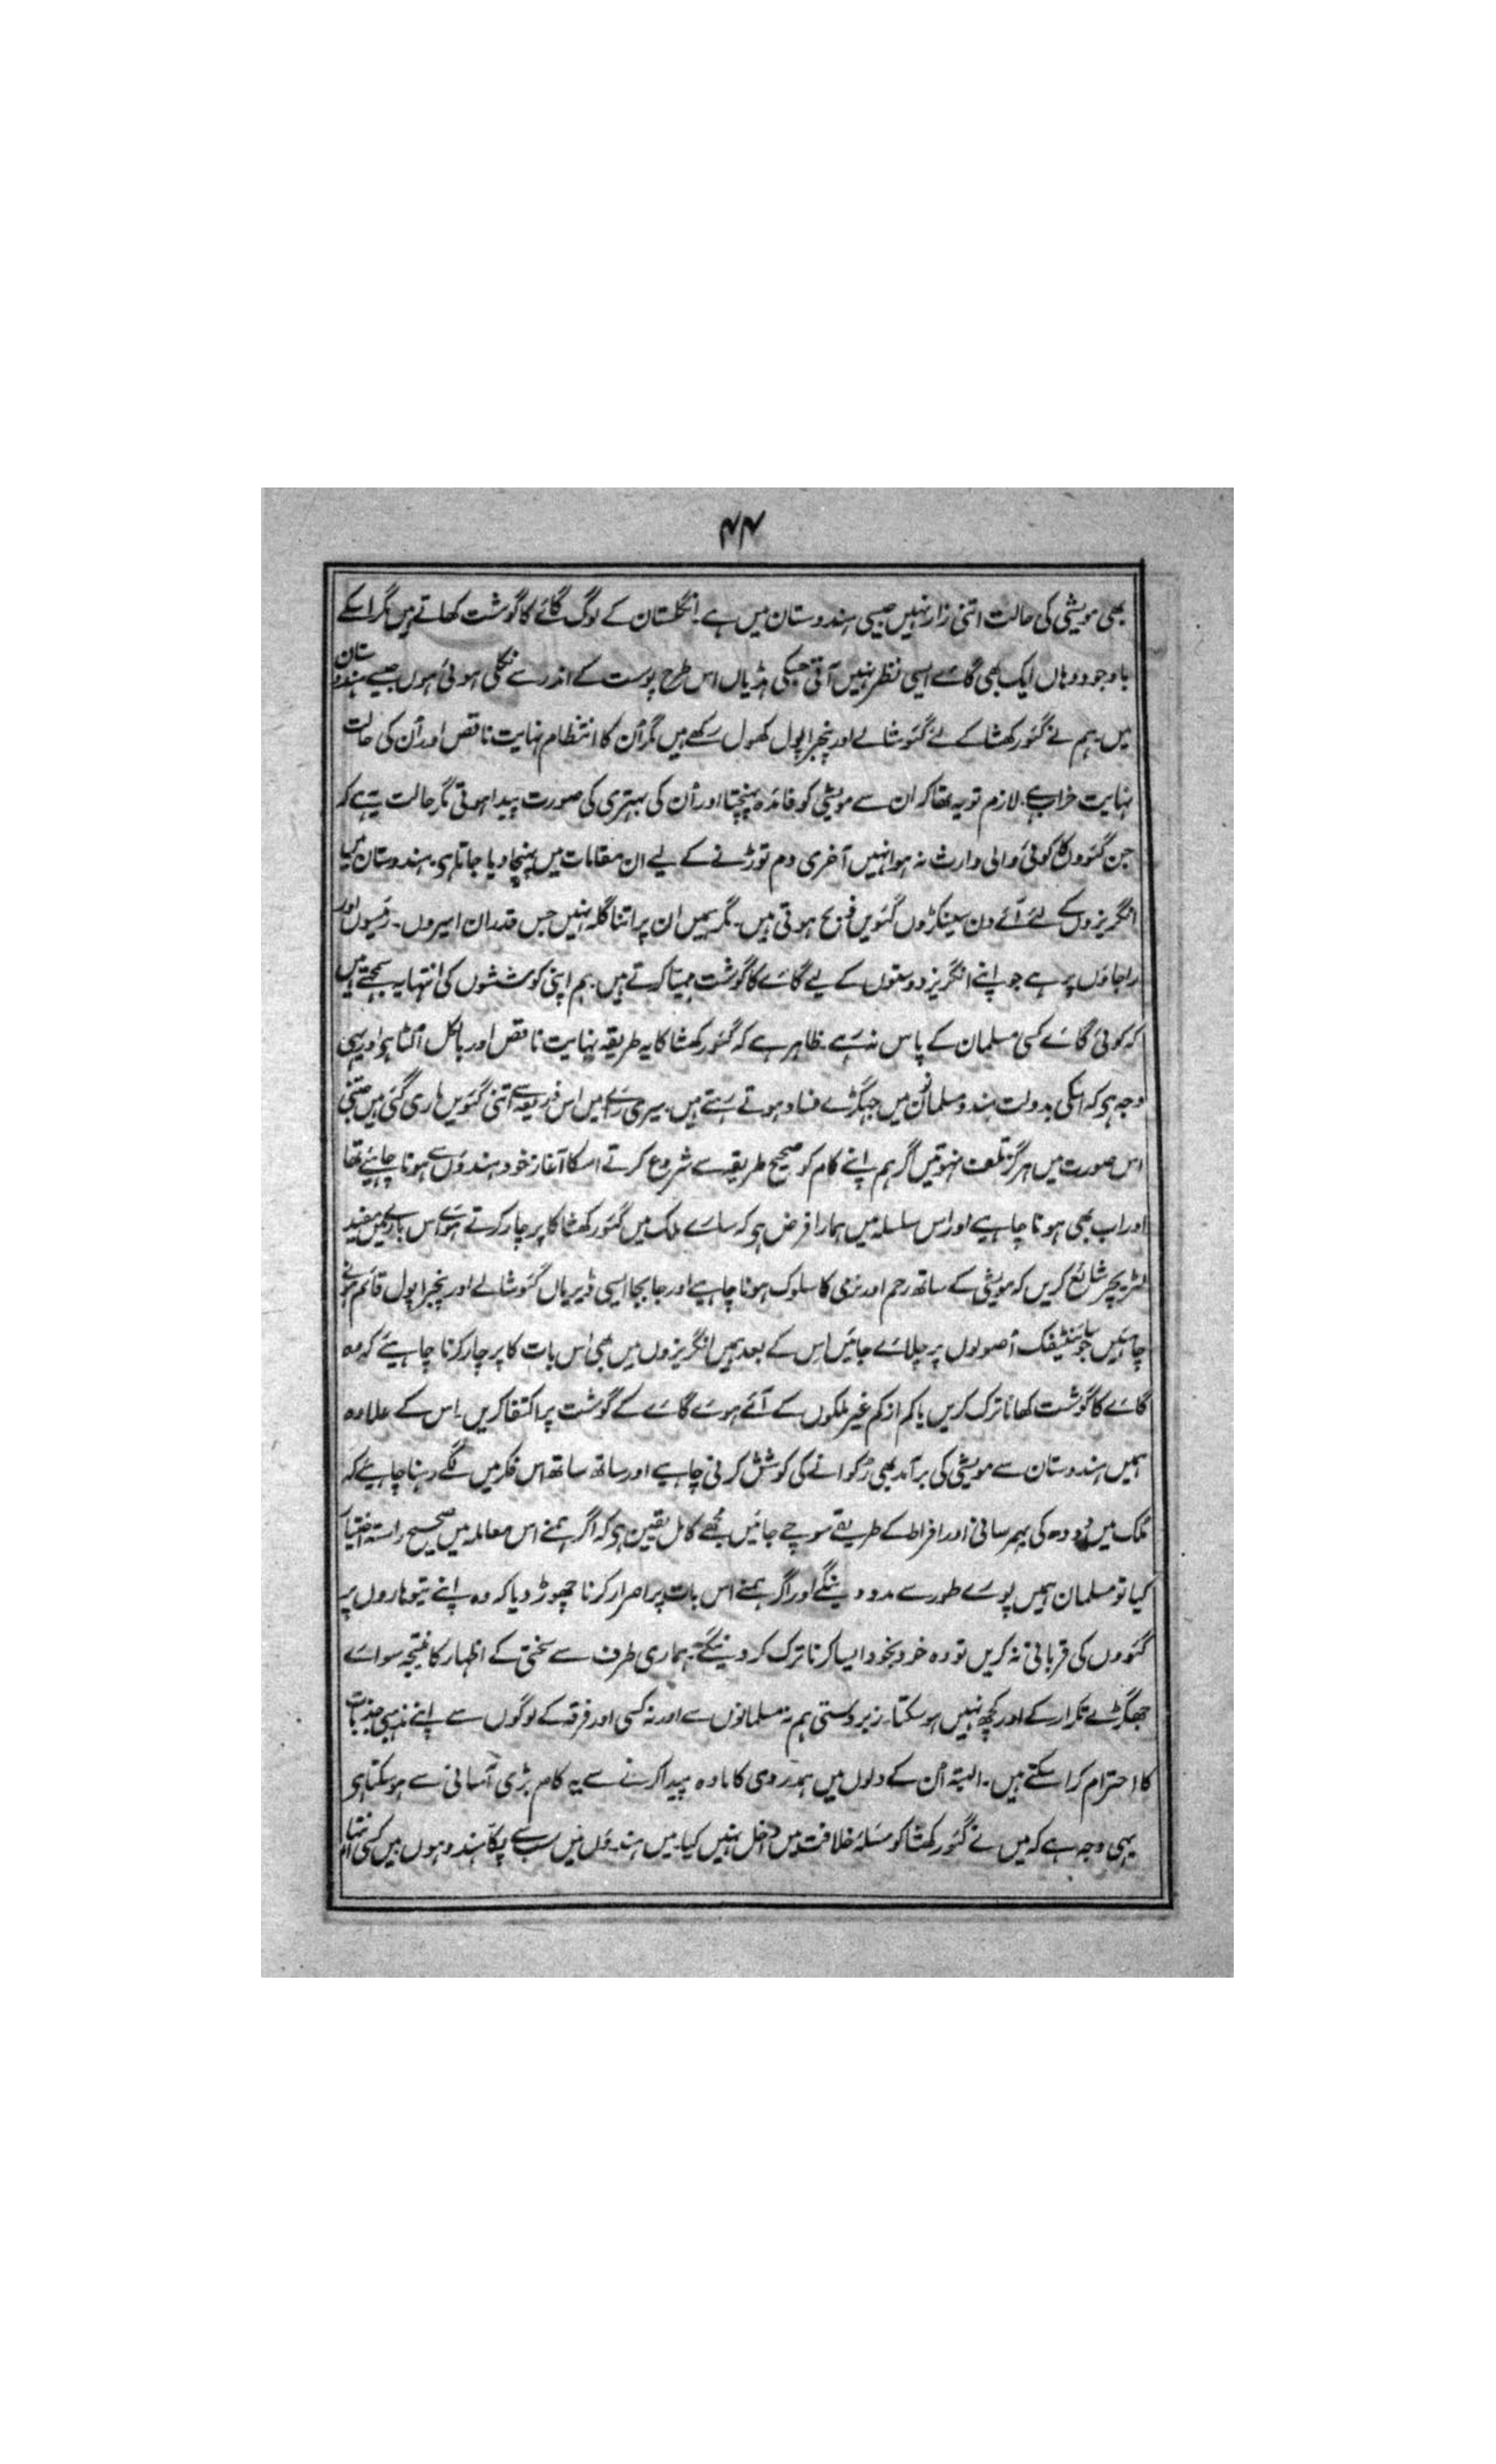 ۴۴
بھی مویشی کی حالت اتنی زار نہیں جیسی ہندوستان میں ہے۔ انگلستان کے لوگ گائے کا گوشت کھاتے ہیں مگر اسکے
باوجود وہاں ایک بھی گائے ایسی نظر نہیں آتی جسکی ہڈیاں اس طرح پوست کے اندر سے نکلی ہوئی ہوں جیسے ہندوستان
میں۔ ہم نے گئورکھشا کے لئے گئوشالے اور پنجراپول کھول رکھے ہیں مگر اُن کا انتظام نہایت ناقص اور اُن کی حالت
نہایت خراب ہے۔ لازم تو یہ تھا کہ ان سے مویشی کو فائدہ پہنچتا اور اُن کی بہتری کی صورت پیدا ہوتی مگر حالت یہ ہے کہ
جن گئووں کا کوئی والی وارث نہ ہو انہیں آخری دم توڑنے کے لیے ان مقامات میں پہنچا دیا جاتا ہی۔ ہندوستان میں
انگریزوں کے لئے آئے دن سینکڑوں گئویں ذبح ہوتی ہیں۔ مگر ہمیں ان پر اتنا گلہ نہیں جس قدر ان امیروں۔ رئیسوں اور
راجاؤں پر ہے جو اپنے انگریز دوستوں کے لیے گائے کا گوشت مہیا کرتے ہیں۔ ہم اپنی کوششوں کی انتہا یہ سمجہتے ہیں
کہ کوئی گائے کسی مسلمان کے پاس نہ رہے۔ ظاہر ہے کہ گئورکھشا کا یہ طریقہ نہایت ناقص اور بالکل اُلٹا ہی اور یہی
وجہ ہی کہ اسکی بدولت ہندو مسلمانوں میں جہگڑے فساد ہوتے رہتے ہیں۔ میری رائے میں اس ذریعہ سے اتنی گئویں ماری گئی ہیں جتنی
اس صورت میں ہرگز تلف نہوتیں اگر ہم اپنے کام کو صحیح طریقہ سے شروع کرتے اسکا آغاز خود ہندوؤں سے ہونا چاہیئے تھا
اور اب بھی ہونا چاہیے اور اس سلسلہ میں ہمارا فرض ہی کہ سارے ملک میں گئورکھشا کا پرچار کرتے ہوئے اس بارے میں مفید
لٹریچر شائع کریں کہ مویشی کے ساتھ رحم اور نرمی کا سلوک ہونا چاہیے اور جابجا ایسی ڈیریاں گئوشالے اور پنجراپول قائم ہونے
چاہئیں جو سائنٹیفک اُصولوں پر چلائے جائیں اِس کے بعد ہمیں انگریزوں میں بھی اُس بات کا پرچار کرنا چاہیئے کہ وہ
گائے کا گوشت کھانا ترک کریں یا کم از کم غیر ملکوں کے آئے ہوئے گائے کے گوشت پر اکتفا کریں۔ اس کے علاوہ
ہمیں ہندوستان سے مویشی کی برآمد بھی رُکوانے کی کوشش کرنی چاہیے اور ساتھ ساتھ اس فکر میں لگے رہنا چاہیئے کہ
ملک میں دودھ کی بہمرسانی اور افراط کے طریقے سوچے جائیں مجھے کامل یقین ہی کہ اگر ہمنے اس معاملہ میں صحیح راستہ اختیار
کیا تو مسلمان ہمیں پورے طور سے مدد دینگے اور اگر ہمنے اس بات پر اصرار کرنا چھوڑ دیا کہ وہ اپنے تیوہاروں پر
گئووں کی قربانی نہ کریں تو وہ خود بخود ایسا کرنا ترک کر دینگے۔ ہماری طرف سے سختی کے اظہار کا نتیجہ سوائے
جھگڑے تکرار کے اور کچھ نہیں ہوسکتا۔ زبردستی ہم نہ مسلمانوں سے اور نہ کسی اور فرقہ کے لوگوں سے اپنے مذہبی جذبات
کا احترام کرا سکتے ہیں۔ البتہ اُن کے دلوں میں ہمدردی کا مادہ پیدا کرنے سے یہ کام بڑی آسانی سے ہوسکتا ہی
یہی وجہ ہے کہ میں نے گئورکھشا کو مسئلہ خلافت میں داخل نہیں کیا۔ میں ہندوؤں میں سب سے پکا ہندو ہوں میں کسی